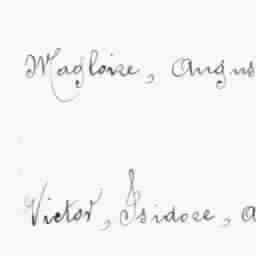 Magloire, Augus
Victor, Isidore, a